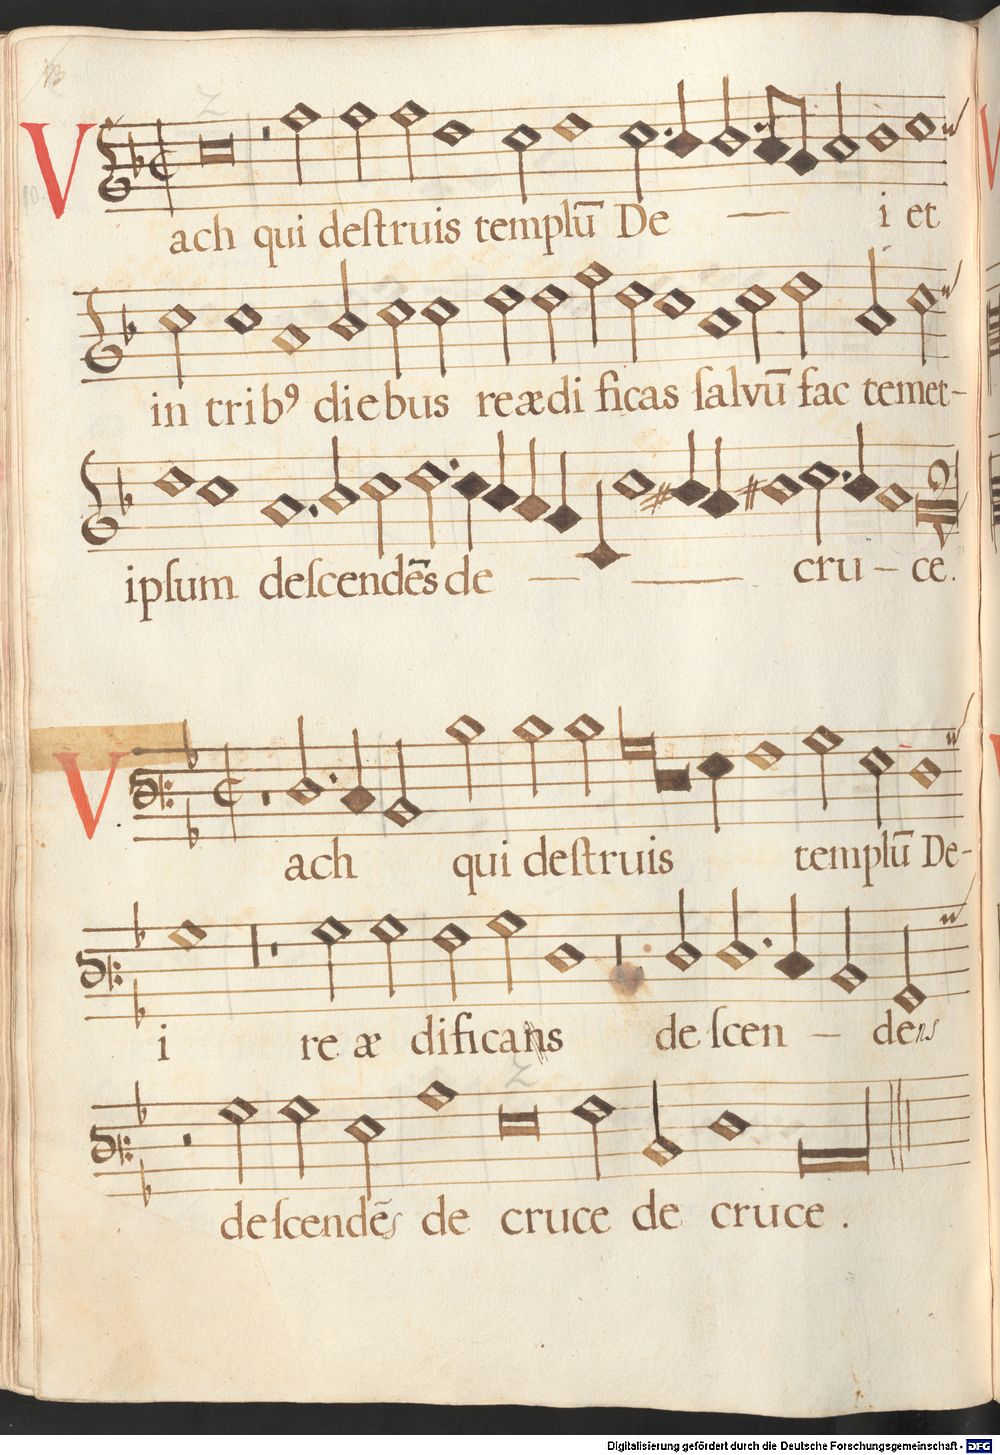 Vach qui deſtruis templū De — i et
in tribꝰ diebus reædi ficas ſalvū fac temet-
ipſum deſcendēs de — — cru – ce.
Vach qui deſtruis templū De-
i re æ dificans de ſcen – dens
deſcendēs de cruce de cruce .
Digitalisierung gefördert durch die Deutsche Forschungsgemeinschaft - DFG